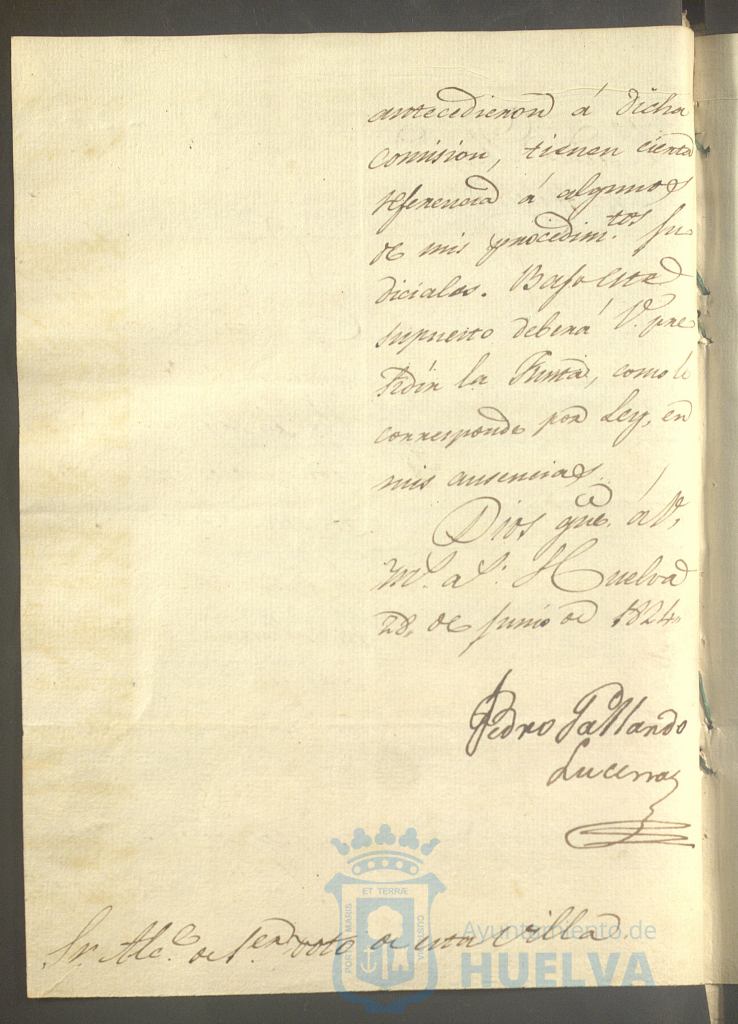 antecedieron á dicha
comision, tienen cierta
referencia á algunos
de mis procedim.tos Ju
diciales. Bajo este
supuesto deberá V. pre
sidir la Junta, como le
corresponde por Ley, en
mis ausencias.
Dios gue. á V.
m.s a.s Huelva
28, de Junio de 1824.
Pedro Gallardo
Lucena
Sr. Alc.e de 1.er voto de esta Villa
PORTUS MARIS
ET TERRÆ
CUSTODIA
Ayuntamiento de
HUELVA